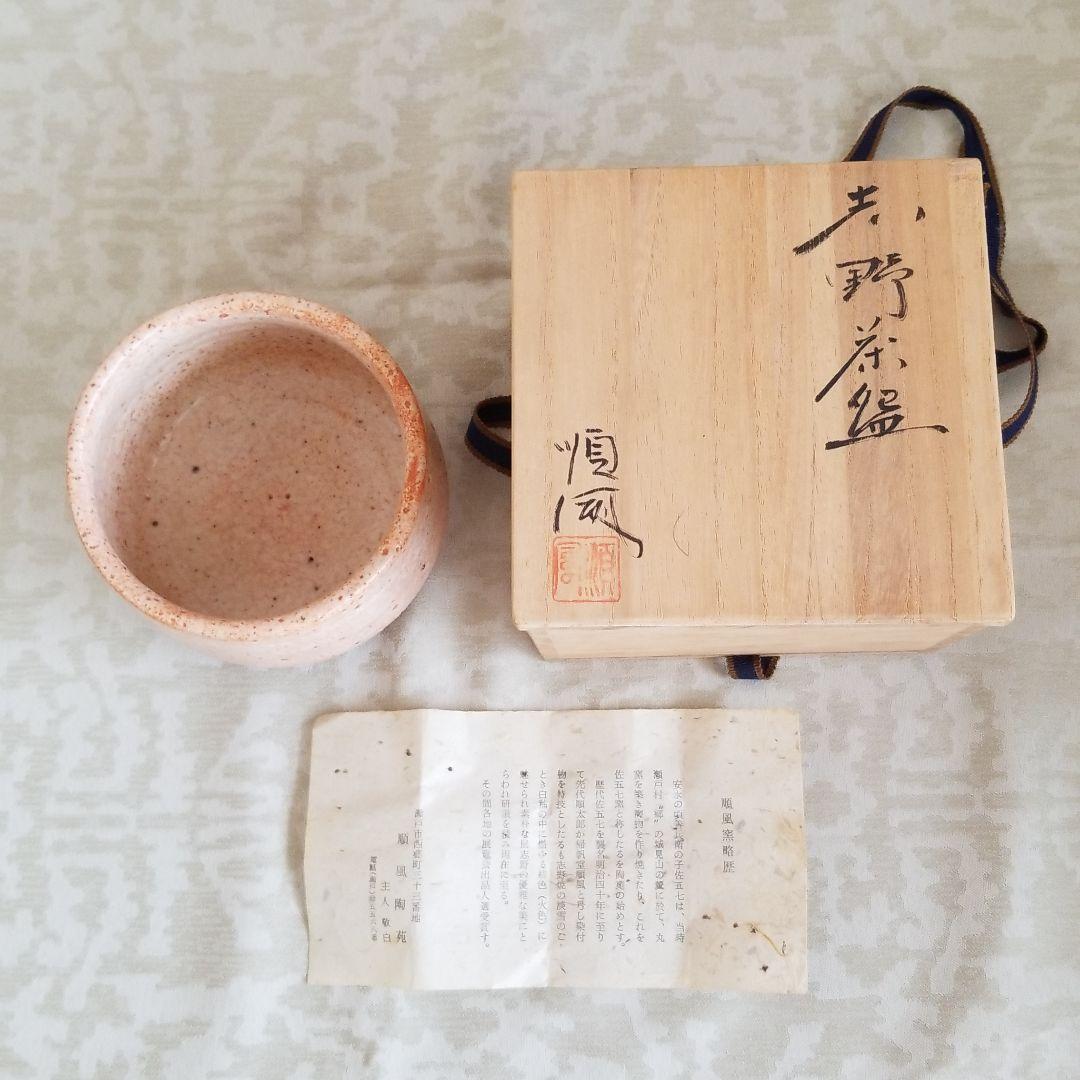 志野茶盌
順風
順風窯略歴
安永の頃
の子佐五七は、当時
瀬戸村"郷"の城見山の麓に於て、丸
窯を築き陶物を作り焼きたり。これを
佐五七窯と称したるを陶歴の始めとす。
歴代佐五七を襲名明治四十年に至り
て先代順太郎が帰帆堂順風と号し染付
物を特技としたるも志野焼の淡雪のご
とき白釉の中に燃ゆる緋色(火色)に
魅せられ素朴な風志野の優雅な美にと
らわれ研鑽を積み現在に至る。
その間各地の展覧会出品入選受賞す。
瀬戸市西郷町三十三番地
順風陶苑
主人敬白